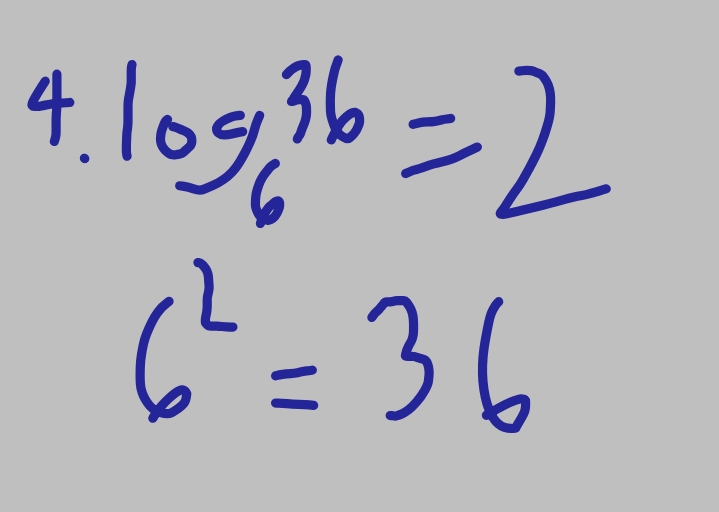 4. log₆36 = 2
6² = 36